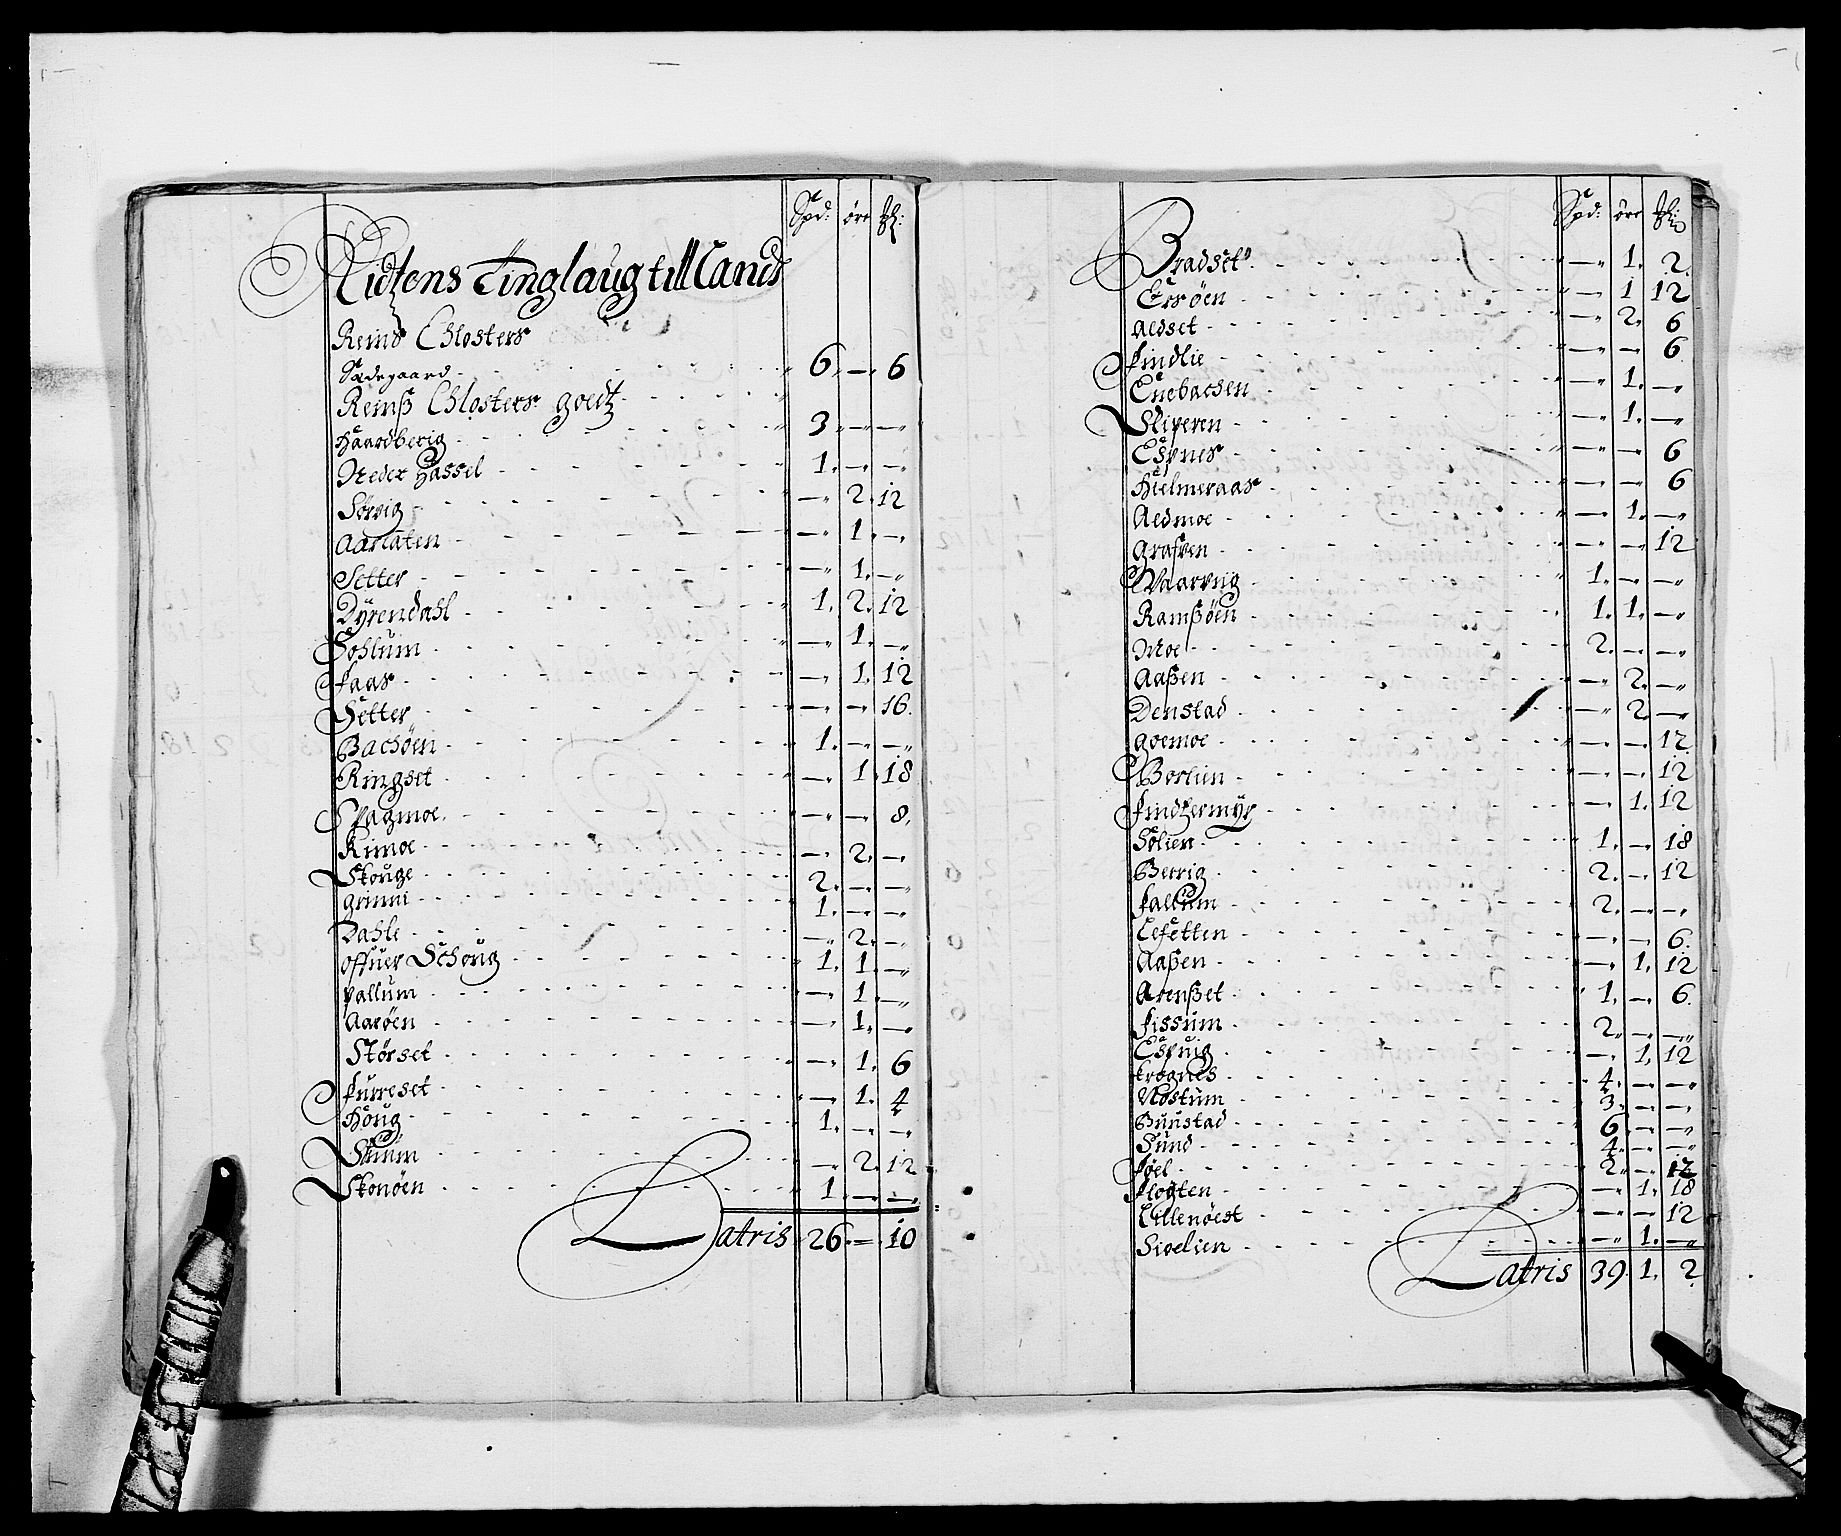 Spd: öre
Tinglaug till Lands
Reins Closters
Sædegaard 6 — 6
Reinß Closters goedtz
Haardberig 3 — —
Neder Hassel 1 — —
Sørvig — 2 12
Aarlaten — 1 —
Setter — 1 —
Dÿrendahl 1 2 12
Sohlum — 1 —
faas — 1 12
Setter — — 16
Bachöen 1 — —
Ringset — 1 18
Vagmoe — — 8
Rimoe — 2 —
Skouge 2 — —
grinni 1 — —
Dahle — 2 —
offuer Schoug 1 1 —
vallum — 1 —
Aaröen — 1 —
Størset — 1 6
furreset — 1 4
Houg 1 — —
— 2 12
Skonöen 1 — —
Latris 26 — 10
Spd: öre
Bradset — 1 2
Ersöen — 1 12
Aedset — 2 6
findlie — — 6
Enebachen — 1 —
Sliperen — 1 —
Espnes — — 6
Hielmeraas — — 6
Aedmoe — 1 —
grafven — — 12
Waarvig 1 — —
Ramßöen 1 1 —
Moe 2 — —
Aaßen — 2 —
Denstad — 2 —
goemoe — — 12
Borlien — — 12
findtzermÿr — 1 12
Sølien 1 — 18
Berrig 2 — 12
fallum 2 — —
Lefetten — — 6
Aaßen — 1 12
Arenßet 1 — 6
fissum 2 — —
Espuig — 1 12
krognes 4 — —
Rostum 3 — —
Buustad 6 — —
Sund 4 — —
føel 2 — 12
flogten — 1 18
Lillenöest — — 12
Sioelien — 1 —
Latris 39 1 2